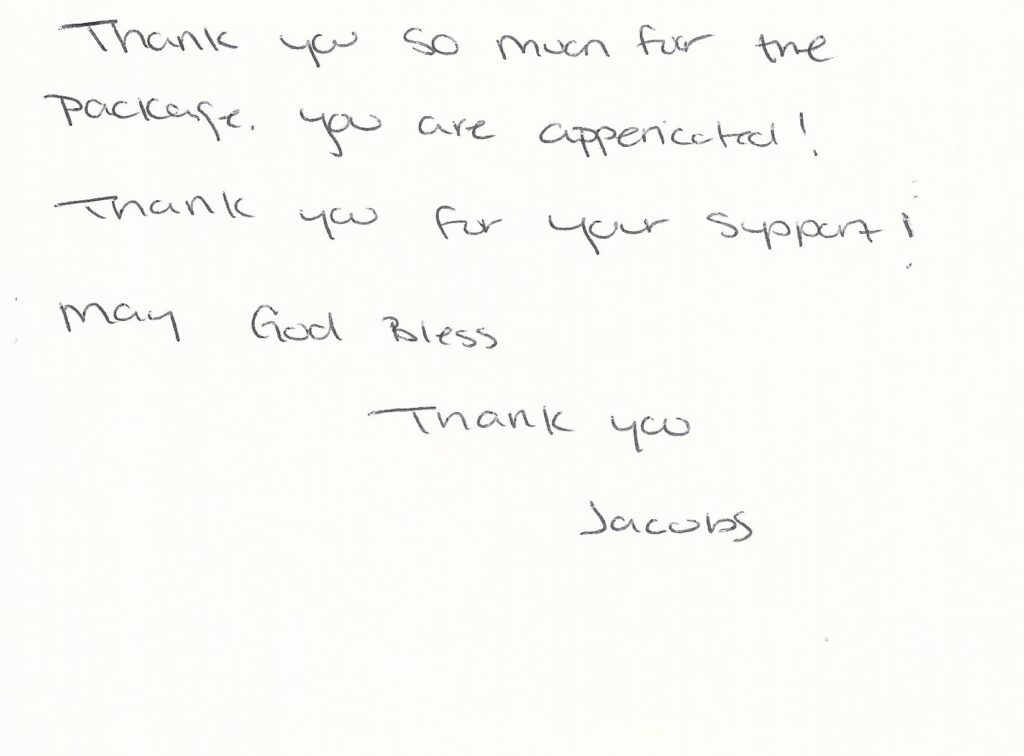 Thank you so much for the
package. you are appericated!
Thank you for your support!
may God Bless
Thank you
Jacobs